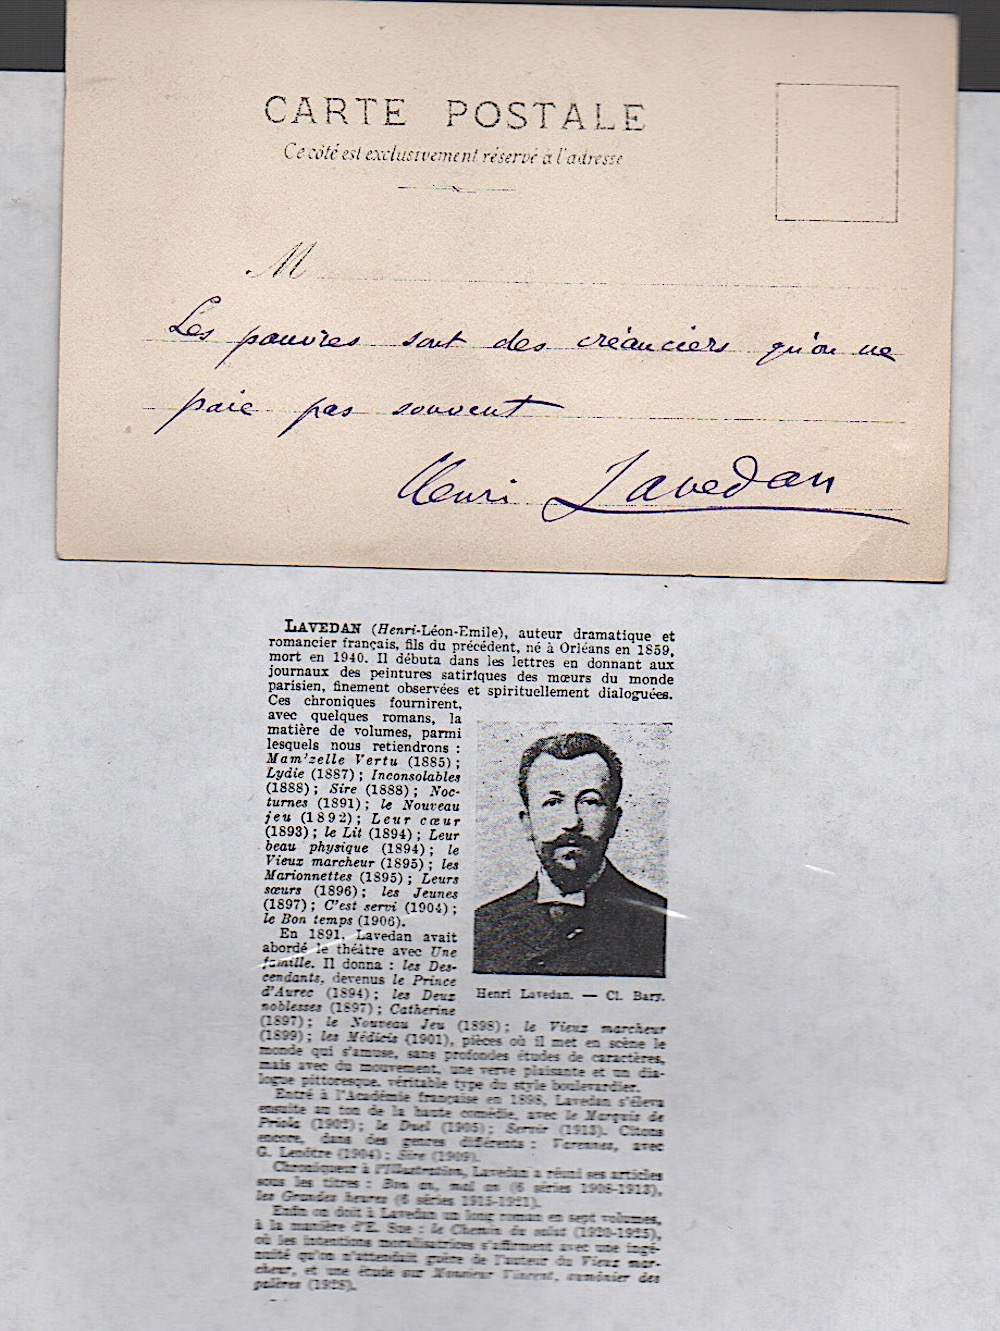 CARTE POSTALE
Ce côté est exclusivement réservé à l'adresse
M
Les pauvres sont des créanciers qu'on ne
paie pas souvent
Henri Lavedan
LAVEDAN (Henri-Léon-Emile), auteur dramatique et
romancier français, fils du précédent, né à Orléans en 1859,
mort en 1940. Il débuta dans les lettres en donnant aux
journaux des peintures satiriques des mœurs du monde
parisien, finement observées et spirituellement dialoguées.
Ces chroniques fournirent,
avec quelques romans, la
matière de volumes, parmi
lesquels nous retiendrons :
Mam'zelle Vertu (1885) ;
Lydie (1887) ; Inconsolables
(1888) ; Sire (1888) ; Noc-
turnes (1891) ; le Nouveau
jeu (1892) ; Leur cœur
(1893) ; le Lit (1894) ; Leur
beau physique (1894) ; le
Vieux marcheur (1895) ; les
Marionnettes (1895) ; Leurs
sœurs (1896) ; les Jeunes
(1897) ; C'est servi (1904) ;
le Bon temps (1906).
En 1891, Lavedan avait
abordé le théâtre avec Une
famille. Il donna : les Des-
cendants, devenus le Prince
d'Aurec (1894) ; les Deux
noblesses (1897) ; Catherine
Henri Lavedan. — Cl. Bary.
(1897) ; le Nouveau Jeu (1898) ; le Vieux marcheur
(1899) ; les Médicis (1901), pièces où il met en scène le
monde qui s'amuse, sans profondes études de caractères,
mais avec du mouvement, une verve plaisante et un dia-
logue pittoresque, véritable type du style boulevardier.
Entré à l'Académie française en 1898, Lavedan s'éleva
ensuite au ton de la haute comédie, avec le Marquis de
Priola (1902) ; le Duel (1905) ; Servir (1913). Citons
encore, dans des genres différents : Varennes, avec
G. Lenôtre (1904) ; Sire (1909).
Chroniqueur à l'Illustration, Lavedan a réuni ses articles
sous les titres : Bon an, mal an (6 séries 1908-1913),
les Grandes heures (6 séries 1915-1921).
Enfin on doit à Lavedan un long roman en sept volumes,
à la manière d'E. Sue : le Chemin du salut (1920-1925),
où les intentions moralisatrices s'affirment avec une ingé-
nuité qu'on n'attendait guère de l'auteur du Vieux mar-
cheur, et une étude sur Monsieur Vincent, aumônier des
galères (1928).